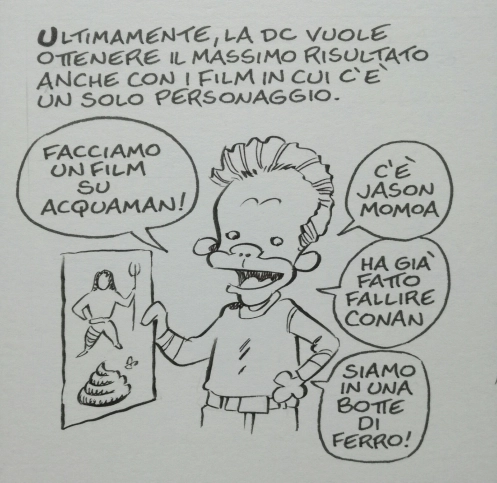 ULTIMAMENTE, LA DC VUOLE
OTTENERE IL MASSIMO RISULTATO
ANCHE CON I FILM IN CUI C'È
UN SOLO PERSONAGGIO.
FACCIAMO
UN FILM
SU
ACQUAMAN!
C'È
JASON
MOMOA
HA GIÀ
FATTO
FALLIRE
CONAN
SIAMO
IN UNA
BOTTE
DI
FERRO!